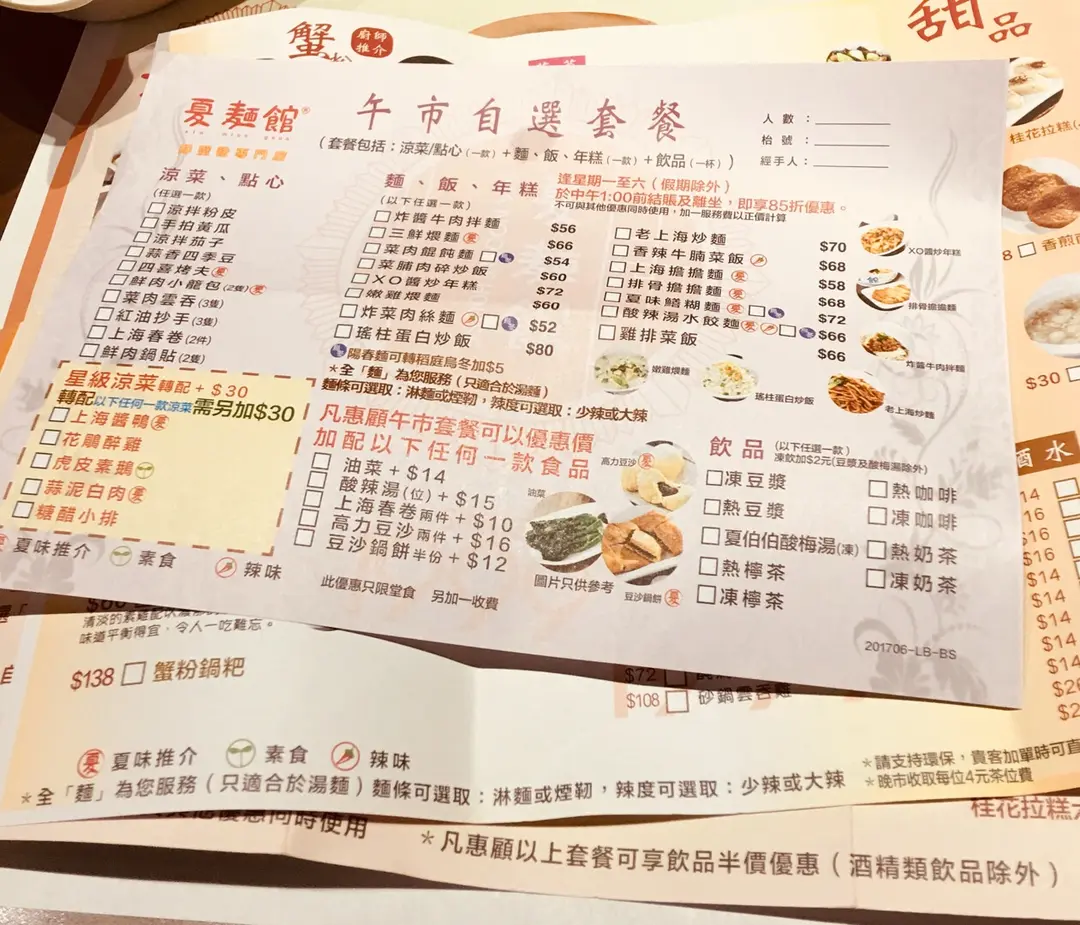 蟹粉
廚師
推介
甜品
夏麵館®
xia mian guan
午市自選套餐
(套餐包括：涼菜/點心(一款)＋麵、飯、年糕(一款)＋飲品(一杯))
人數：
枱號：
經手人：
涼菜、點心
(任選一款)
涼拌粉皮
手拍黃瓜
涼拌茄子
蒜香四季豆
四喜烤夫
鮮肉小籠包(2隻)
菜肉雲吞(3隻)
紅油抄手(3隻)
上海春卷(2件)
鮮肉鍋貼(2隻)
星級涼菜轉配+$30
轉配以下任何一款涼菜需另加$30
上海醬鴨
花鵰醉雞
虎皮素鵝
蒜泥白肉
糖醋小排
夏味推介 素食 辣味
麵、飯、年糕
(以下任選一款)
逢星期一至六（假期除外）
於中午1:00前結賬及離坐，即享85折優惠。
不可與其他優惠同時使用，加一服務費以正價計算
炸醬牛肉拌麵 $56
三鮮煨麵 $66
菜肉餛飩麵 $54
菜脯肉碎炒飯 $60
XO醬炒年糕 $72
嫩雞煨麵 $60
炸菜肉絲麵 $52
瑤柱蛋白炒飯 $80
老上海炒麵 $70
香辣牛腩菜飯 $68
上海擔擔麵 $58
排骨擔擔麵 $68
夏味鱔糊麵 $72
酸辣湯水餃麵 $66
雞排菜飯 $66
陽春麵可轉稻庭烏冬加$5
*全「麵」為您服務（只適合於湯麵）
麵條可選取：淋麵或煙韌，辣度可選取：少辣或大辣
XO醬炒年糕
排骨擔擔麵
炸醬牛肉拌麵
老上海炒麵
嫩雞煨麵
瑤柱蛋白炒飯
凡惠顧午市套餐可以優惠價
加配以下任何一款食品
油菜+$14
酸辣湯(位)+$15
上海春卷兩件+$10
高力豆沙兩件+$16
豆沙鍋餅半份+$12
此優惠只限堂食 另加一收費
高力豆沙
油菜
圖片只供參考
豆沙鍋餅
飲品
(以下任選一款)
凍飲加$2元(豆漿及酸梅湯除外)
凍豆漿
熱豆漿
夏伯伯酸梅湯(凍)
熱檸茶
凍檸茶
熱咖啡
凍咖啡
熱奶茶
凍奶茶
201706-LB-BS
桂花拉糕
$30
酒水
14
16
$16
$16
$14
$14
$14
$14
味道平衡得宜，令人一吃難忘。
$138 蟹粉鍋粑
$72
$108 砂鍋雲吞雞
夏味推介 素食 辣味
*全「麵」為您服務（只適合於湯麵）麵條可選取：淋麵或煙韌，辣度可選取：少辣或大辣
*請支持環保，貴客加單時可直
*晚市收取每位4元茶位費
優惠同時使用
*凡惠顧以上套餐可享飲品半價優惠（酒精類飲品除外）
桂花拉糕